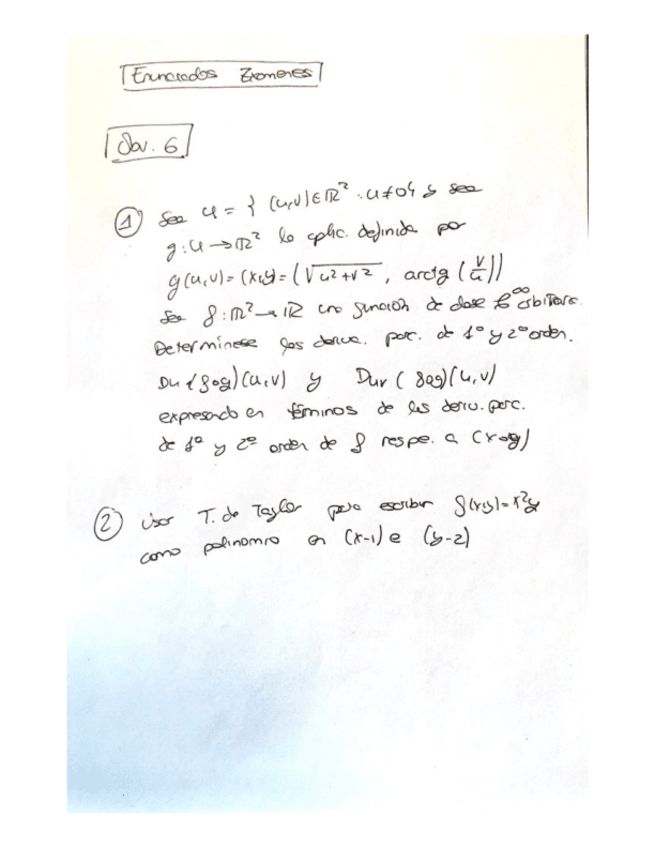 Enunciados Exámenes
1 Sea U = { (u,v)∈ℝ² : u≠0} y sea
g: U → ℝ² la aplic. definida por
g(u,v) = (x,y) = (√u²+v², arctg (v/u))
Sea f: ℝ² → ℝ una función de clase C^∞ arbitrara.
Determinese las deriva. parc. de 1º y 2º orden.
Du (fog)(u,v) y Duv (fog)(u,v)
expresando en términos de las deriv. parc.
de 1º y 2º orden de f respe. a (x e y)
2 Usar T. de Taylor para escribir f(x,y) = x²y
como polinomio en (x-1) e (y-2)